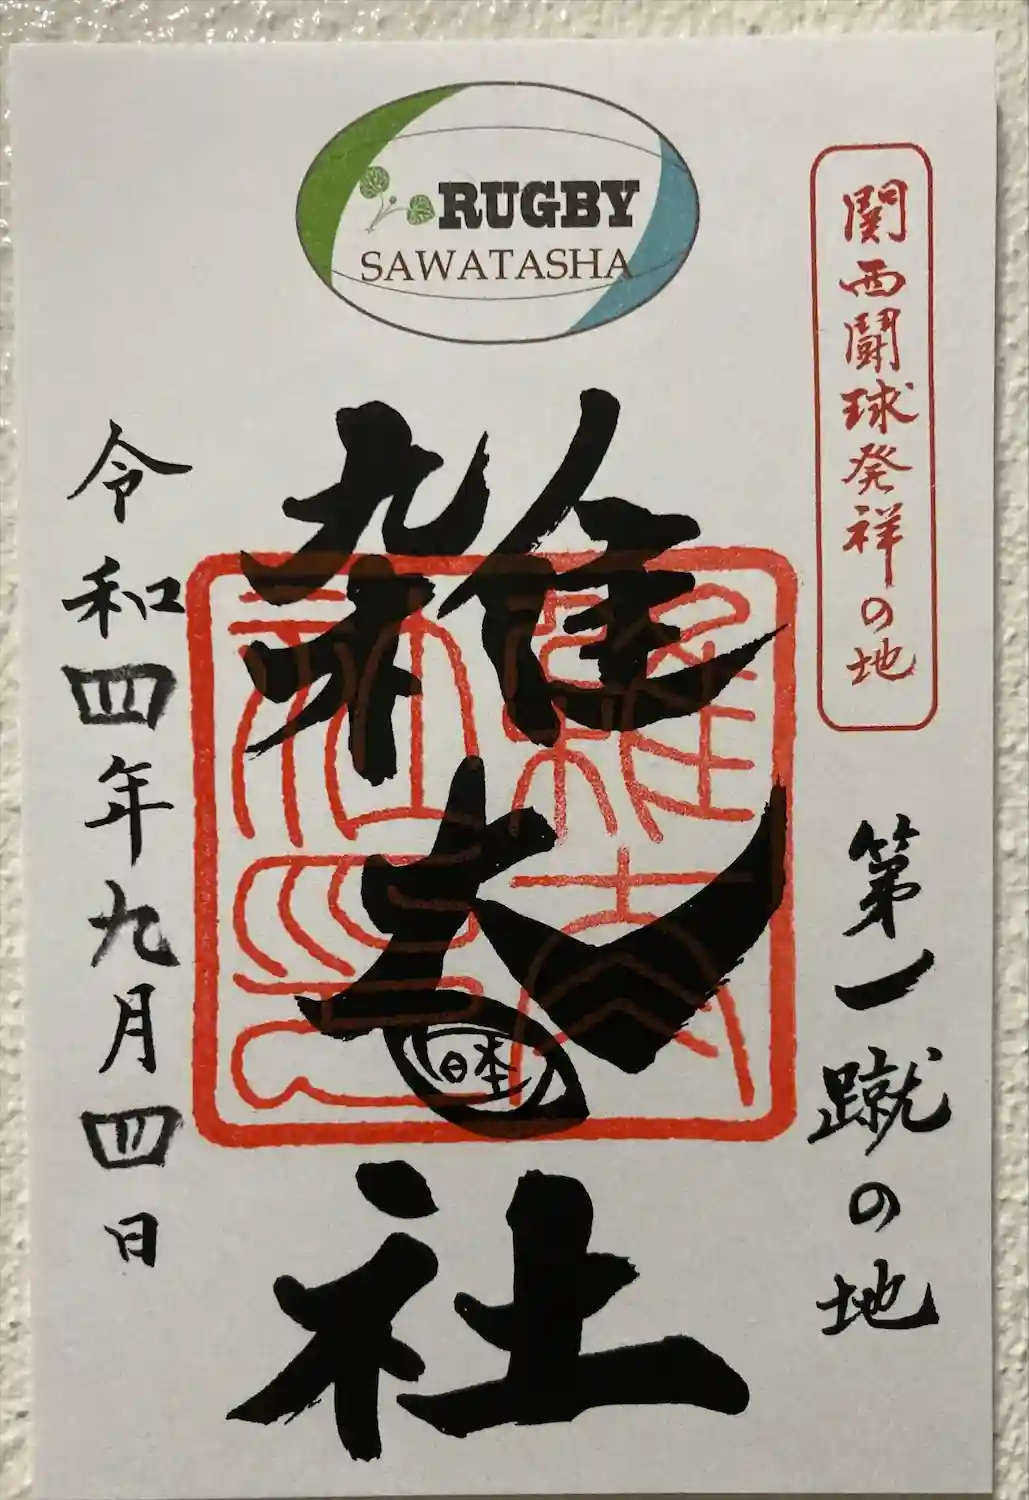 RUGBY
SAWATASHA
関西闘球発祥の地
第一蹴の地
雑太社
日本
令和四年九月四日